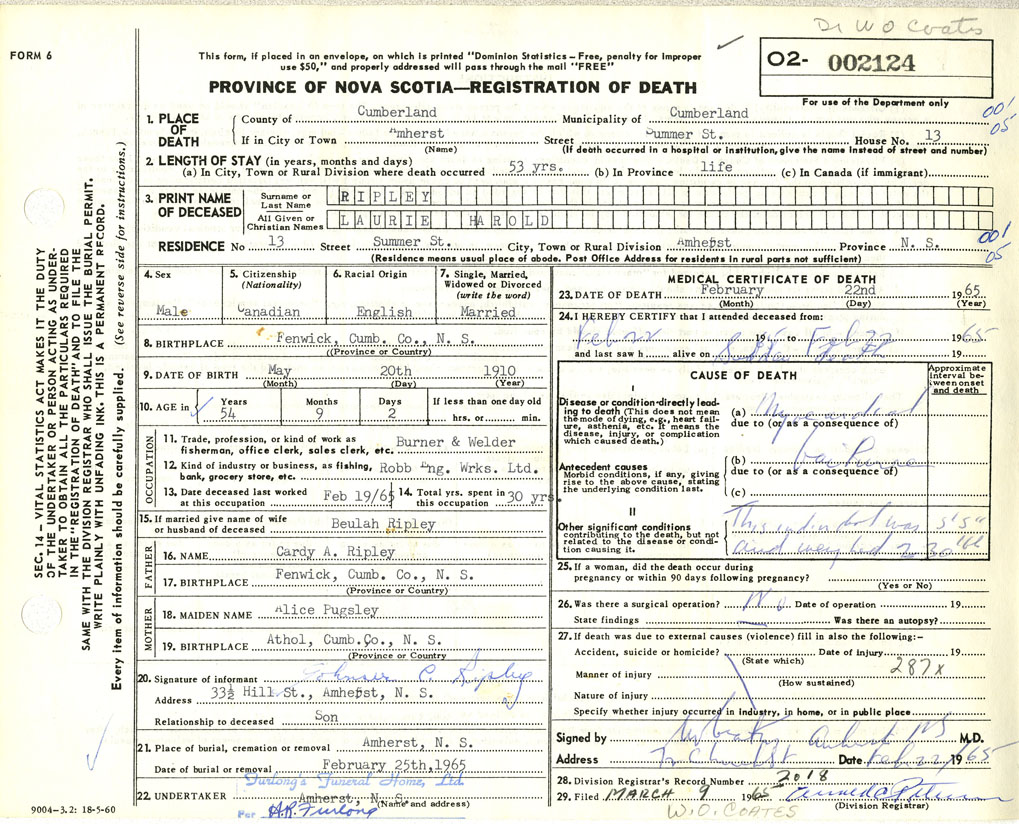 Dr W O Coates
FORM 6
This form, if placed in an envelope, on which is printed "Dominion Statistics – Free, penalty for improper
use $50," and properly addressed will pass through the mail "FREE"
O2- 002124
PROVINCE OF NOVA SCOTIA—REGISTRATION OF DEATH
For use of the Department only
001
05
1. PLACE OF DEATH
County of Cumberland Municipality of Cumberland
If in City or Town Amherst Street Summer St. House No. 13
(Name) (If death occurred in a hospital or institution, give the name instead of street and number)
2. LENGTH OF STAY (in years, months and days)
(a) In City, Town or Rural Division where death occurred 53 yrs. (b) In Province life (c) In Canada (if immigrant)
3. PRINT NAME OF DECEASED
Surname or Last Name RIPLEY
All Given or Christian Names LAURIE HAROLD
001
05
RESIDENCE No 13 Street Summer St. City, Town or Rural Division Amherst Province N. S.
(Residence means usual place of abode. Post Office Address for residents in rural parts not sufficient)
4. Sex Male
5. Citizenship (Nationality) Canadian
6. Racial Origin English
7. Single, Married, Widowed or Divorced (write the word) Married
8. BIRTHPLACE Fenwick, Cumb. Co., N. S.
(Province or Country)
9. DATE OF BIRTH May 20th 1910
(Month) (Day) (Year)
10. AGE in Years 54 Months 9 Days 2 If less than one day old hrs. or min.
OCCUPATION
11. Trade, profession, or kind of work as fisherman, office clerk, sales clerk, etc. Burner & Welder
12. Kind of industry or business, as fishing, bank, grocery store, etc. Robb Eng. Wrks. Ltd.
13. Date deceased last worked at this occupation Feb 19/65
14. Total yrs. spent in this occupation 30 yrs.
15. If married give name of wife or husband of deceased Beulah Ripley
FATHER
16. NAME Cardy A. Ripley
17. BIRTHPLACE Fenwick, Cumb. Co., N. S.
(Province or Country)
MOTHER
18. MAIDEN NAME Alice Pugsley
19. BIRTHPLACE Athol, Cumb.Co., N. S.
(Province or Country
20. Signature of informant C Ripley
Address 33½ Hill St., Amherst, N. S.
Relationship to deceased Son
21. Place of burial, cremation or removal Amherst, N. S.
Date of burial or removal February 25th,1965
Furlong's Funeral Home, Ltd.
22. UNDERTAKER Amherst, N. S.
(Name and address)
Per A.R. Furlong
MEDICAL CERTIFICATE OF DEATH
23. DATE OF DEATH February 22nd 1965
(Month) (Day) (Year)
24. I HEREBY CERTIFY that I attended deceased from:
Feb 22 1965 to Feb 22 1965
and last saw h alive on Sudden death 19
CAUSE OF DEATH
Approximate interval between onset and death
I
Disease or condition directly leading to death (This does not mean the mode of dying, e.g., heart failure, asthenia, etc. It means the disease, injury, or complication which caused death.)
(a) Myocardial
due to (or as a consequence of)
Antecedent causes
Morbid conditions, if any, giving rise to the above cause, stating the underlying condition last.
(b) Failure
due to (or as a consequence of)
(c)
II
Other significant conditions contributing to the death, but not related to the disease or condition causing it.
This individual was 5'5"
and weighed 230 lbs
25. If a woman, did the death occur during pregnancy or within 90 days following pregnancy?
(Yes or No)
26. Was there a surgical operation? No Date of operation 19
State findings Was there an autopsy?
27. If death was due to external causes (violence) fill in also the following:–
Accident, suicide or homicide? Date of injury 19
(State which)
287x
Manner of injury
(How sustained)
Nature of injury
Specify whether injury occurred in industry, in home, or in public place
Signed by Amherst NS M.D.
Address Date Feb 22/ 1965
28. Division Registrar's Record Number 2018
29. Filed MARCH 9 1965
(Division Registrar)
W.O. COATES
SEC. 14 – VITAL STATISTICS ACT MAKES IT THE DUTY
OF THE UNDERTAKER OR PERSON ACTING AS UNDERTAKER TO OBTAIN ALL THE PARTICULARS REQUIRED
IN THE "REGISTRATION OF DEATH" AND TO FILE THE
SAME WITH THE DIVISION REGISTRAR WHO SHALL ISSUE THE BURIAL PERMIT.
WRITE PLAINLY WITH UNFADING INK–THIS IS A PERMANENT RECORD.
Every item of information should be carefully supplied. (See reverse side for instructions.)
9004–3.2: 18-5-60